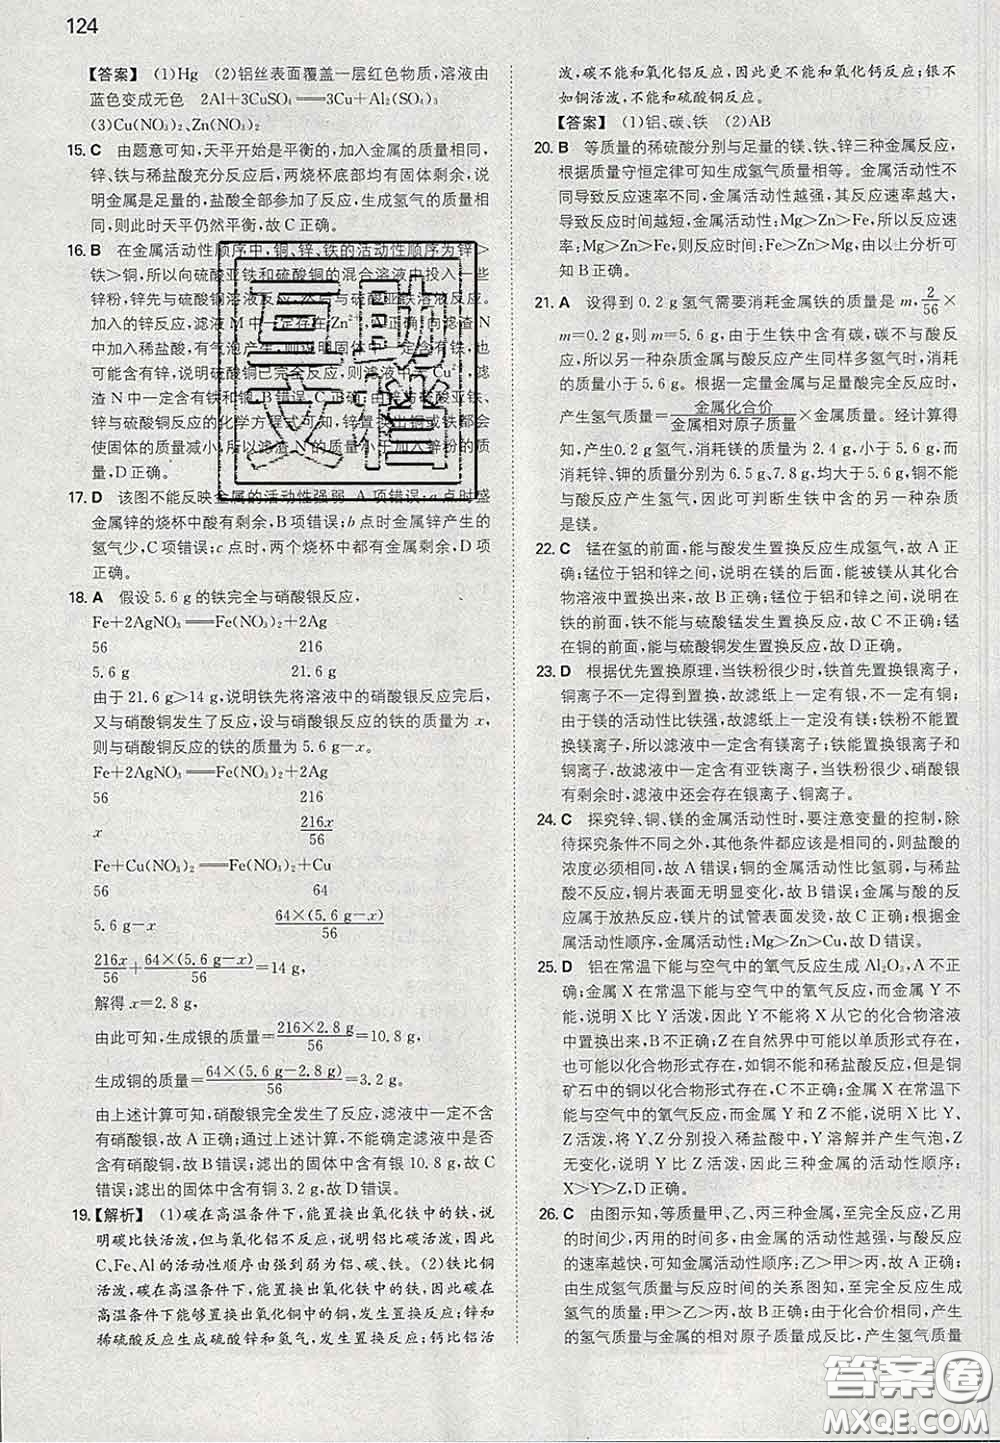 124
【答案】 (1)Hg (2)铝丝表面覆盖一层红色物质,溶液由
蓝色变成无色 2Al+3CuSO₄══3Cu+Al₂(SO₄)₃
(3)Cu(NO₃)₂、Zn(NO₃)₂
15. C 由题意可知,天平开始是平衡的,加入金属的质量相同,
锌、铁与稀盐酸充分反应后,两烧杯底部均有固体剩余,说
明金属是足量的,盐酸全部参加了反应,生成氢气的质量
相同,则此时天平仍然平衡,故 C 正确。
16. B 在金属活动性顺序中,铜、锌、铁的活动性顺序为锌>
铁>铜,所以向硫酸亚铁和硫酸铜的混合溶液中投入一些
锌粉,锌先与硫酸铜溶液反应,然后与硫酸亚铁反应。
加入的锌反应,滤液 M 中一定存在Zn²⁺,A正确;向滤渣 N
中加入稀盐酸,有气泡产生,则说明固体中一定含有铁,
可能含有锌,说明硫酸铜已完全反应,则滤液中无Cu²⁺,滤
渣 N 中一定含有铁和铜,B 错误,C正确;由锌与硫酸亚铁、
硫酸铜反应的化学方程式可知,锌置换出铜或铁都会
使固体的质量减小,所以滤渣 N 的质量小于加入锌粉的质
量,D正确。
17. D 该图不能反映金属的活动性强弱,A项错误;a点时盛
金属锌的烧杯中酸有剩余,B项错误;b点时金属锌产生的
氢气少,C项错误;c点时,两个烧杯中都有金属剩余,D项
正确。
18. A 假设 5.6 g 的铁完全与硝酸银反应,
Fe+2AgNO₃══Fe(NO₃)₂+2Ag
56 216
5.6 g 21.6 g
由于 21.6 g>14 g,说明铁先将溶液中的硝酸银反应完后,
又与硝酸铜发生了反应,设与硝酸银反应的铁的质量为 x,
则与硝酸铜反应的铁的质量为 5.6 g−x。
Fe+2AgNO₃══Fe(NO₃)₂+2Ag
56 216
x 216x/56
Fe+Cu(NO₃)₂══Fe(NO₃)₂+Cu
56 64
5.6 g−x 64×(5.6 g−x)/56
216x/56+64×(5.6 g−x)/56=14 g,
解得 x=2.8 g,
由此可知,生成银的质量=216×2.8 g/56=10.8 g,
生成铜的质量=64×(5.6 g−2.8 g)/56=3.2 g。
由上述计算可知,硝酸银完全发生了反应,滤液中一定不含
有硝酸银,故 A 正确;通过上述计算,不能确定滤液中是否
含有硝酸铜,故 B 错误;滤出的固体中含有银 10.8 g,故 C
错误;滤出的固体中含有铜 3.2 g,故 D 错误。
19.【解析】 (1)碳在高温条件下,能置换出氧化铁中的铁,说
明碳比铁活泼,但与氧化铝不反应,说明铝比碳活泼,因此
C、Fe、Al的活动性顺序由强到弱为铝、碳、铁。(2)铁比铜
活泼,碳在高温条件下,能置换出氧化铁中的铁,因此碳在
高温条件下能够置换出氧化铜中的铜,发生置换反应;锌和
稀硫酸反应生成硫酸锌和氢气,发生置换反应;钙比铝活
泼,碳不能和氧化铝反应,因此更不能和氧化钙反应;银不
如铜活泼,不能和硫酸铜反应。
【答案】 (1)铝、碳、铁 (2)AB
20. B 等质量的稀硫酸分别与足量的镁、铁、锌三种金属反应,
根据质量守恒定律可知生成氢气质量相等。金属活动性不
同导致反应速率不同,金属活动性越强,其反应速率越大,
导致反应时间越短,金属活动性:Mg>Zn>Fe,所以反应速
率:Mg>Zn>Fe,则反应时间:Fe>Zn>Mg,由以上分析可
知 B 正确。
21. A 设得到 0.2 g 氢气需要消耗金属铁的质量是 m,2/56×
m=0.2 g,则 m=5.6 g,由于生铁中含有碳,碳不与酸反
应,所以另一种杂质金属与酸反应产生同样多氢气时,消耗
的质量小于 5.6 g。根据一定量金属与足量酸完全反应时,
产生氢气质量=金属化合价/金属相对原子质量×金属质量。经计算得
知,产生 0.2 g 氢气,消耗镁的质量为 2.4 g,小于 5.6 g,而
消耗锌、钾的质量分别为 6.5 g、7.8 g,均大于 5.6 g,铜不能
与酸反应产生氢气,因此可判断生铁中含的另一种杂质
是镁。
22. C 锰在氢的前面,能与酸发生置换反应生成氢气,故 A 正
确;锰位于铝和锌之间,说明在镁的后面,能被镁从其化合
物溶液中置换出来,故 B 正确;锰位于铝和锌之间,说明在
铁的前面,铁不能与硫酸锰发生置换反应,故 C 不正确;锰
在铜的前面,能与硫酸铜发生置换反应,故 D 正确。
23. D 根据优先置换原理,当铁粉很少时,铁首先置换银离子,
铜离子不一定得到置换,故滤纸上一定有银,不一定有铜。
由于镁的活动性比铁强,故滤纸上一定没有镁;铁粉不能置
换镁离子,所以滤液中一定有镁离子;铁能置换银离子和
铜离子,故滤液中一定含有亚铁离子;当铁粉很少、硝酸银
有剩余时,滤液中还会存在银离子、铜离子。
24. C 探究锌、铜、镁的金属活动性时,要注意变量的控制,除
待探究条件不同之外,其他条件都应该是相同的,则盐酸的
浓度必须相同,故 A 错误;铜的金属活动性比氢弱,与稀盐
酸不反应,铜片表面无明显变化,故 B 错误;金属与酸的反应
属于放热反应,镁片的试管表面发烫,故 C 正确;根据金
属活动性顺序,金属活动性:Mg>Zn>Cu,故 D 错误。
25. D 铝在常温下能与空气中的氧气反应生成 Al₂O₃,A 不正
确;金属 X 在常温下能与空气中的氧气反应,而金属 Y 不
能,说明 X 比 Y 活泼,因此 Y 不能将 X 从它的化合物溶液
中置换出来,B 不正确;Z 在自然界中可能以单质形式存在,
也可能以化合物形式存在,如铜不能和稀盐酸反应,但是铜
矿石中的铜以化合物形式存在,C 不正确;金属 X 在常温下
能与空气中的氧气反应,而金属 Y 和 Z 不能,说明 X 比 Y、
Z 活泼,将 Y、Z 分别投入稀盐酸中,Y 溶解并产生气泡,Z
无变化,说明 Y 比 Z 活泼,因此三种金属的活动性顺序:
X>Y>Z,D 正确。
26. C 由图示知,等质量甲、乙、丙三种金属,至完全反应,乙用
的时间少,丙用的时间多,由金属的活动性越强,与酸反应的
速率越快,可知三种金属的活动性:乙>甲>丙,故 A 正确;
由生成氢气质量与反应时间的关系图知,至完全反应生成
氢气的质量:甲>乙>丙,故 B 正确;由于化合价相同,产生
的氢气质量与金属的相对原子质量成反比,产生氢气质量
互助
文档
答案圈
MXQE.COM